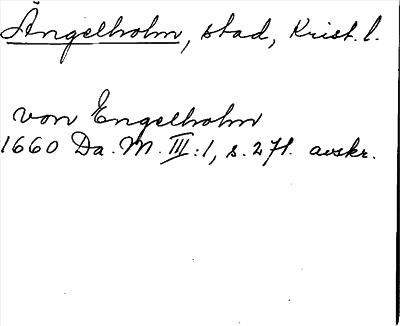 Ängelholm, stad, Krist. l.
von Engelholm
1660 Da. M. III:1, s. 271. avskr.